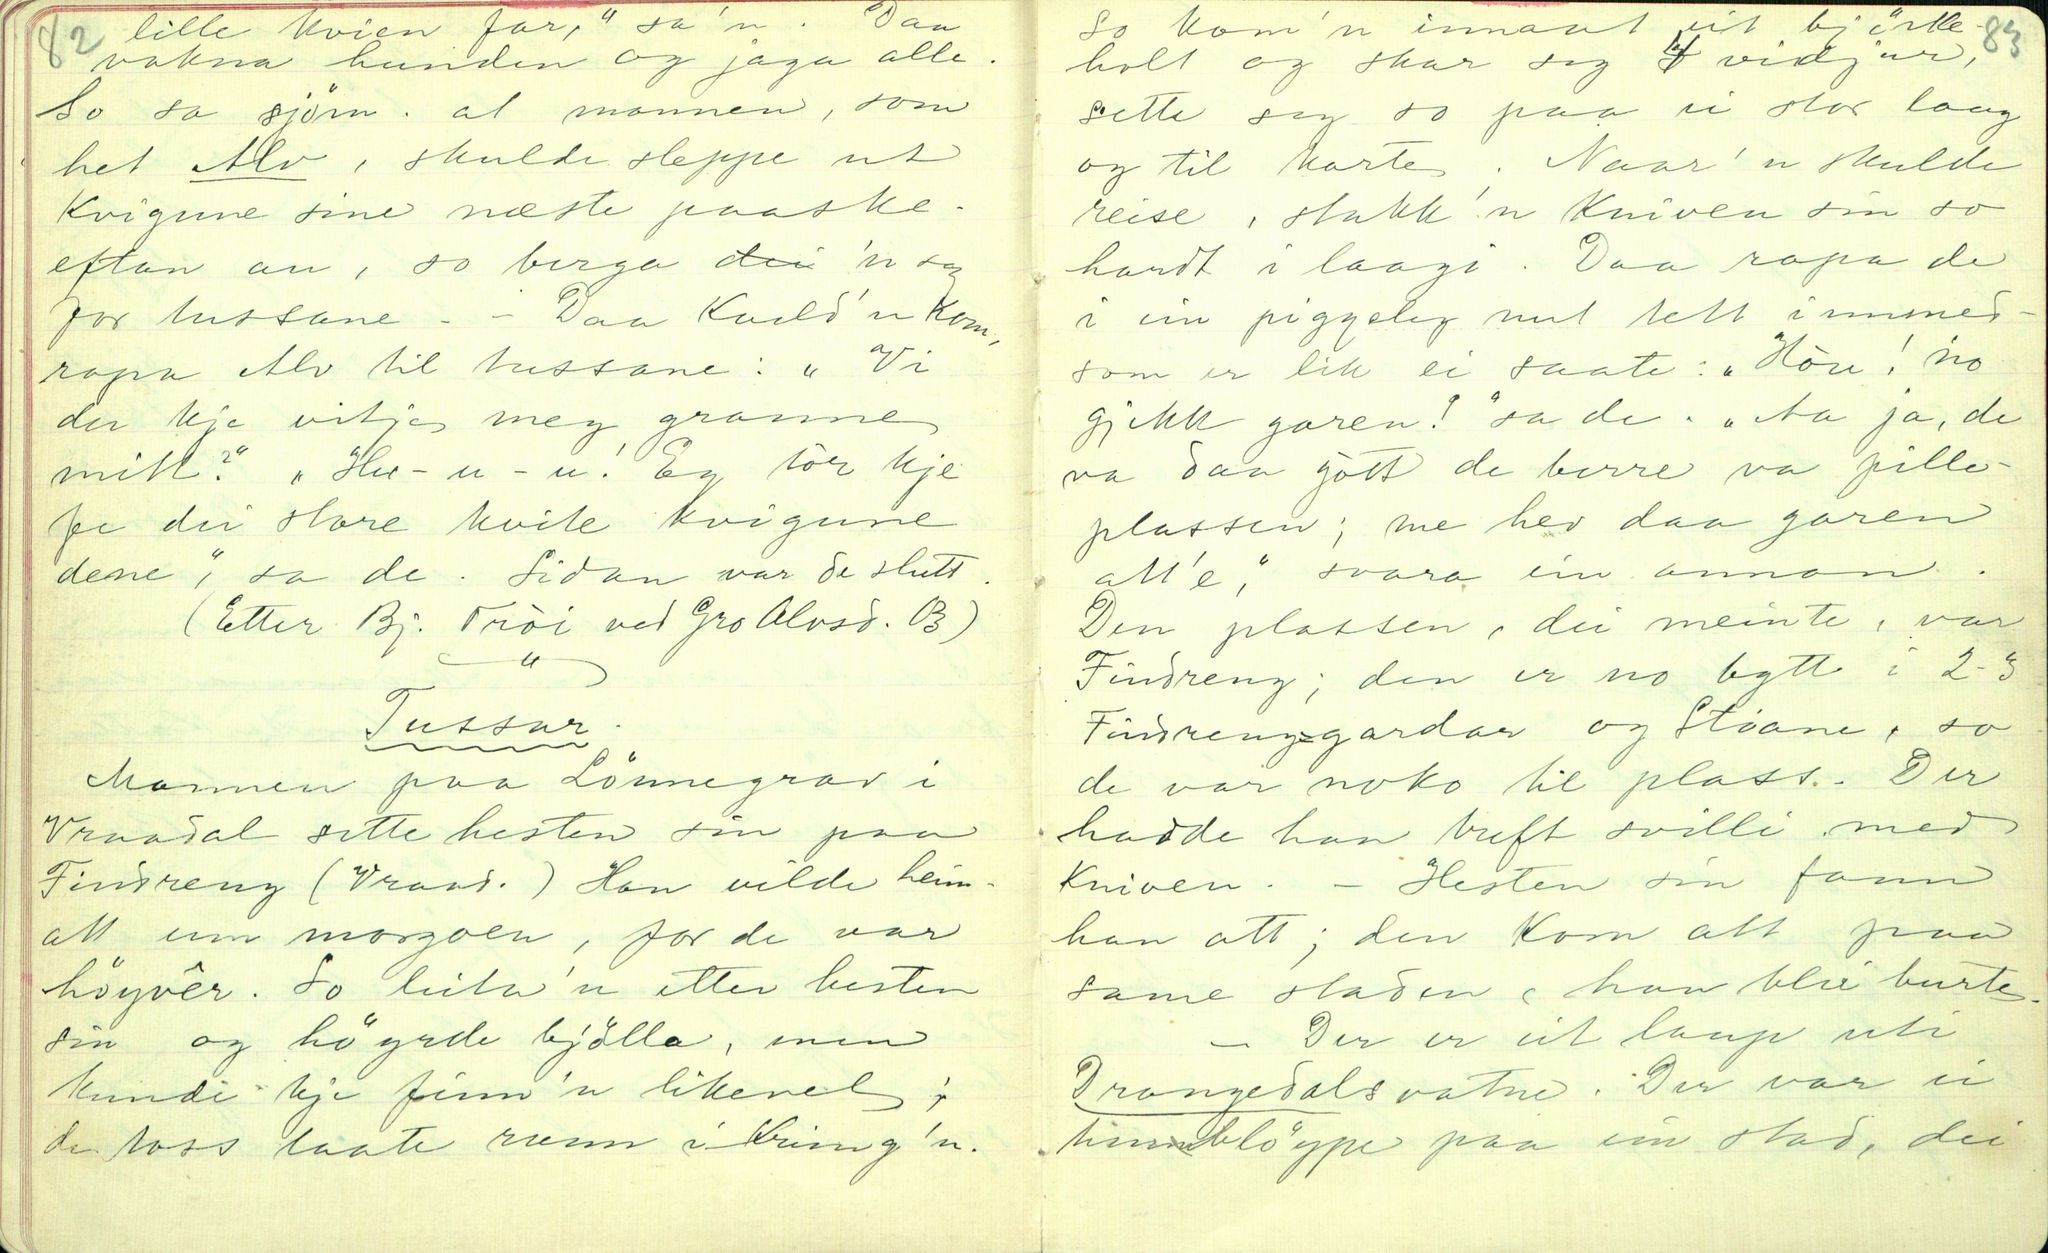 82
lille kvien far," sa'n. Daa
vakna hunden og jaga alle.
So sa sjöm. at mannen, som
het Alv, skulde sleppe ut
kvigune sine næste paaske-
eftan an, so berga 'n seg
for tussane. - Daa kveld'n kom,
ropa Alv til tussane: „Vi
der kje vitja meg granne
mitt?" „Hu-u-u! Eg tòr kje
fe dei store kvite kvigune
dene", sa de. Sidan var de slutt.
(Etter Bj. Tròi ved Gro Alvsd. B)
"
Tussar.
Mannen paa Lönnegrav i
Vraadal sette hesten sin paa
Findreng (Vraad.) Han vilde heim-
att um morgoen, for de var
höyvêr. So leita'n etter hesten
sin og höyrde bjölla, men
kunde kje finn'n likevel;
de toss laate runn i kring'n.
83
So kom'n innaat eit björke-
holt og skar seg vidjur,
sette seg so paa ei stor laag
og til karte. Naar'n skulde
reise, stakk'n kniven sin so
hardt i laagi. Daa ropa de
i ein piggeleg nut tett innmed-
som er lik ei saate: „Höre! no
gjekk garen!" sa de. „Aa ja, de
va daa gött de berre va pille-
plassen; me hev daa garen
att'e," svara ein annan.
Den plassen, dei meinte, var
Findreng; den er no bytt i 2-3
Findrenggardar og Stòane, so
de var noko til plass. - Der
hadde han treft svilli med
kniven. - Hesten sin fann
han att; den kom att paa
same staden, han blei burte.
- Der er eit laup uti
Drangedalsvatne. Der var ei
tunnblöype paa ein stad, dei